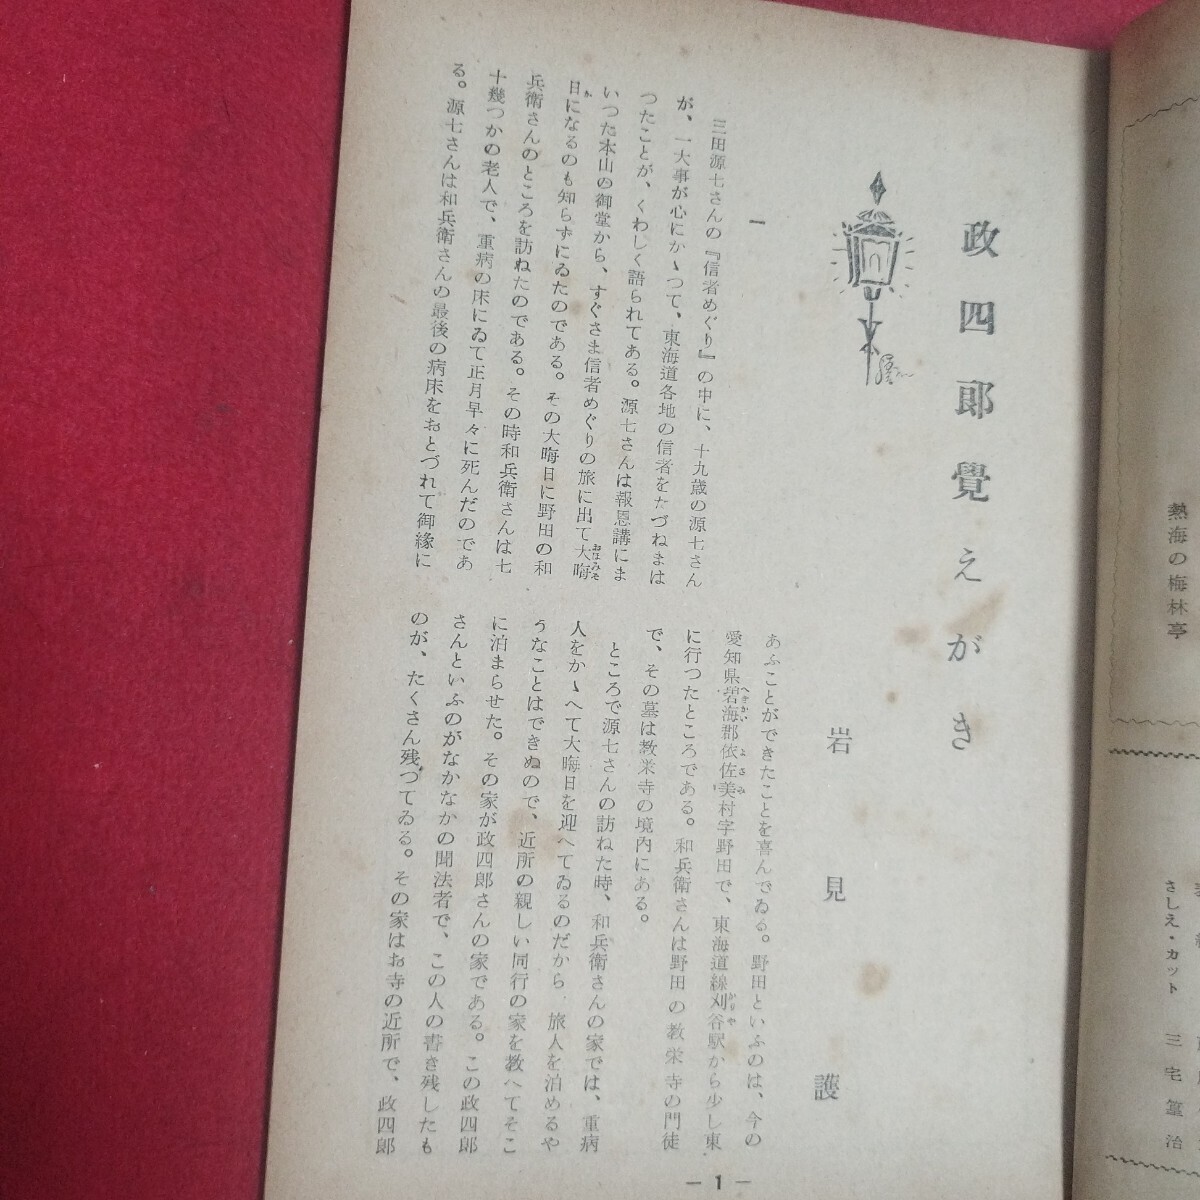 政四郎覺えがき
岩見護
一
三田源七さんの『信者めぐり』の中に、十九歳の源七さん
が、一大事が心にかゝつて、東海道各地の信者をたづねまは
つたことが、くわしく語られてある。源七さんは報恩講にま
いつた本山の御堂から、すぐさま信者めぐりの旅に出て大晦
日になるのも知らずにゐたのである。その大晦日に野田の和
兵衛さんのところを訪ねたのである。その時和兵衛さんは七
十幾つかの老人で、重病の床にゐて正月早々に死んだのであ
る。源七さんは和兵衛さんの最後の病床をおとづれて御緣に
あふことができたことを喜んでゐる。野田といふのは、今の
愛知県碧海郡依佐美村字野田で、東海道線刈谷駅から少し東
に行つたところである。和兵衛さんは野田の教栄寺の門徒
で、その墓は教栄寺の境内にある。
ところで源七さんの訪ねた時、和兵衛さんの家では、重病
人をかゝへて大晦日を迎へてゐるのだから、旅人を泊めるや
うなことはできぬので、近所の親しい同行の家を教へてそこ
に泊まらせた。その家が政四郎さんの家である。この政四郎
さんといふのがなかなかの聞法者で、この人の書き残したも
のが、たくさん残つてゐる。その家はお寺の近所で、政四郎
— 1 —
熱海の梅林亭
さしえ・カット 三宅 治